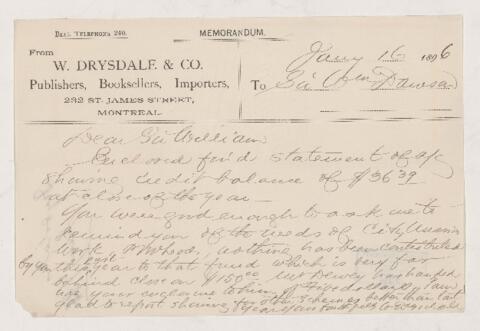 BELL TELEPHONE 240.
MEMORANDUM.
From
W. DRYSDALE & CO.
Publishers, Booksellers, Importers,
232 ST. JAMES STREET,
MONTREAL.
Jany 16 1896
To Sir Wm Dawson
Dear Sir William
Enclosed find statement of a/c
showing credit balance of $36 39
at close of the year—
You were good enough to ask me to
remind you of the needs of City
Work, nothing has been contributed
by you this year to that fund which is very far
behind close on $150 00 Mr Dewey has handed
me your enclosure to him of Five dollars, I am
glad to report showing for other schemes better than last
year